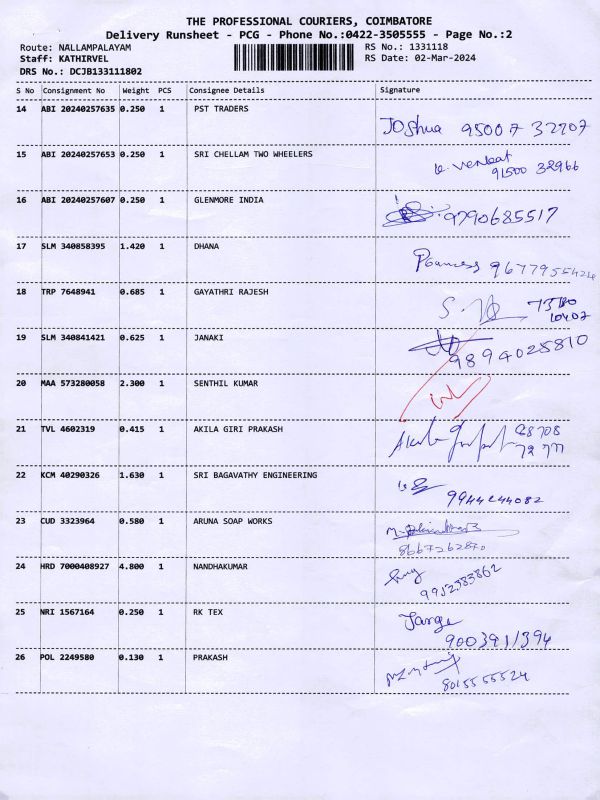 THE PROFESSIONAL COURIERS, COIMBATORE
Delivery Runsheet - PCG - Phone No.:0422-3505555 - Page No.:2
Route: NALLAMPALAYAM
RS No.: 1331118
Staff: KATHIRVEL
RS Date: 02-Mar-2024
DRS No.: DCJB133111802
S No Consignment No Weight PCS Consignee Details Signature
14 ABI 20240257635 0.250 1 PST TRADERS
Joshua 95007 32707
15 ABI 20240257653 0.250 1 SRI CHELLAM TWO WHEELERS
Venkat
91500 32966
16 ABI 20240257607 0.250 1 GLENMORE INDIA
9790685517
17 SLM 340858395 1.420 1 DHANA
18 TRP 7648941 0.685 1 GAYATHRI RAJESH
10402
19 SLM 340841421 0.625 1 JANAKI
9894025810
20 MAA 573280058 2.300 1 SENTHIL KUMAR
21 TVL 4602319 0.415 1 AKILA GIRI PRAKASH
88708
72 777
22 KCM 40290326 1.630 1 SRI BAGAVATHY ENGINEERING
9944244082
23 CUD 3323964 0.580 1 ARUNA SOAP WORKS
8667262870
24 HRD 7000408927 4.800 1 NANDHAKUMAR
9952383862
25 NRI 1567164 0.250 1 RK TEX
9003911394
26 POL 2249580 0.130 1 PRAKASH
8015555524